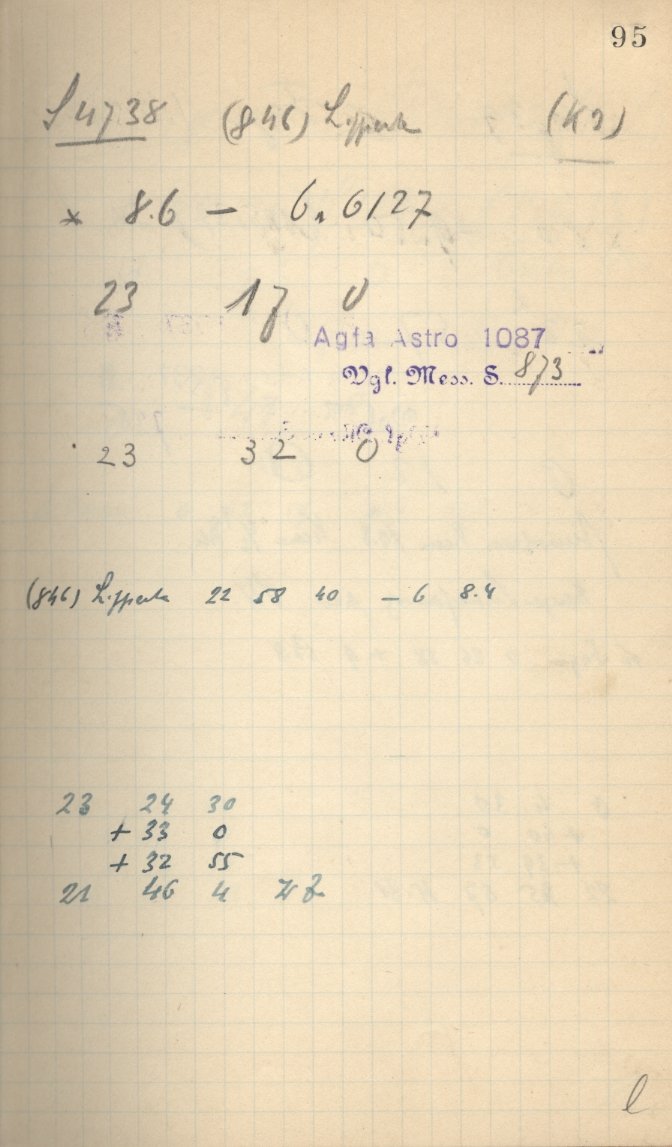 95
S 4738 (846) Lipperta (K2)
* 8.6 — 6,6127
23 17 0
Agfa Astro 1087
Vgl. Mess. S. 873
23 32 0
(846) Lipperta 22 58 40 — 6 8.4
23 24 30
+ 33 0
+ 32 55
21 46 4
l